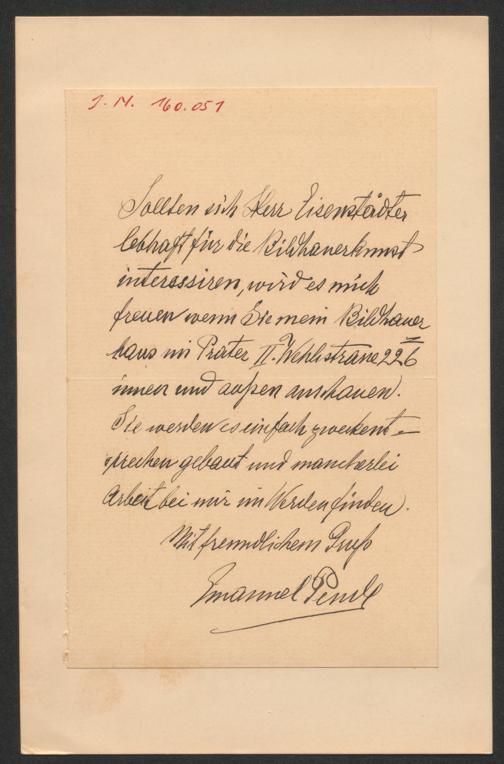 J. N. 160.051
Sollten sich Herr Eisenstädter
lebhaft für die Bildhauerkunst
interessiren, wird es mich
freuen wenn Sie mein Bildhauer=
haus im Prater II. Wehlistrasse 226
innen und außen anschauen.
Sie werden es einfach zweckent=
sprechen gebaut und mancherlei
Arbeit bei mir im Werden finden.
Mit freundlichem Gruß
Emanuel Pendl